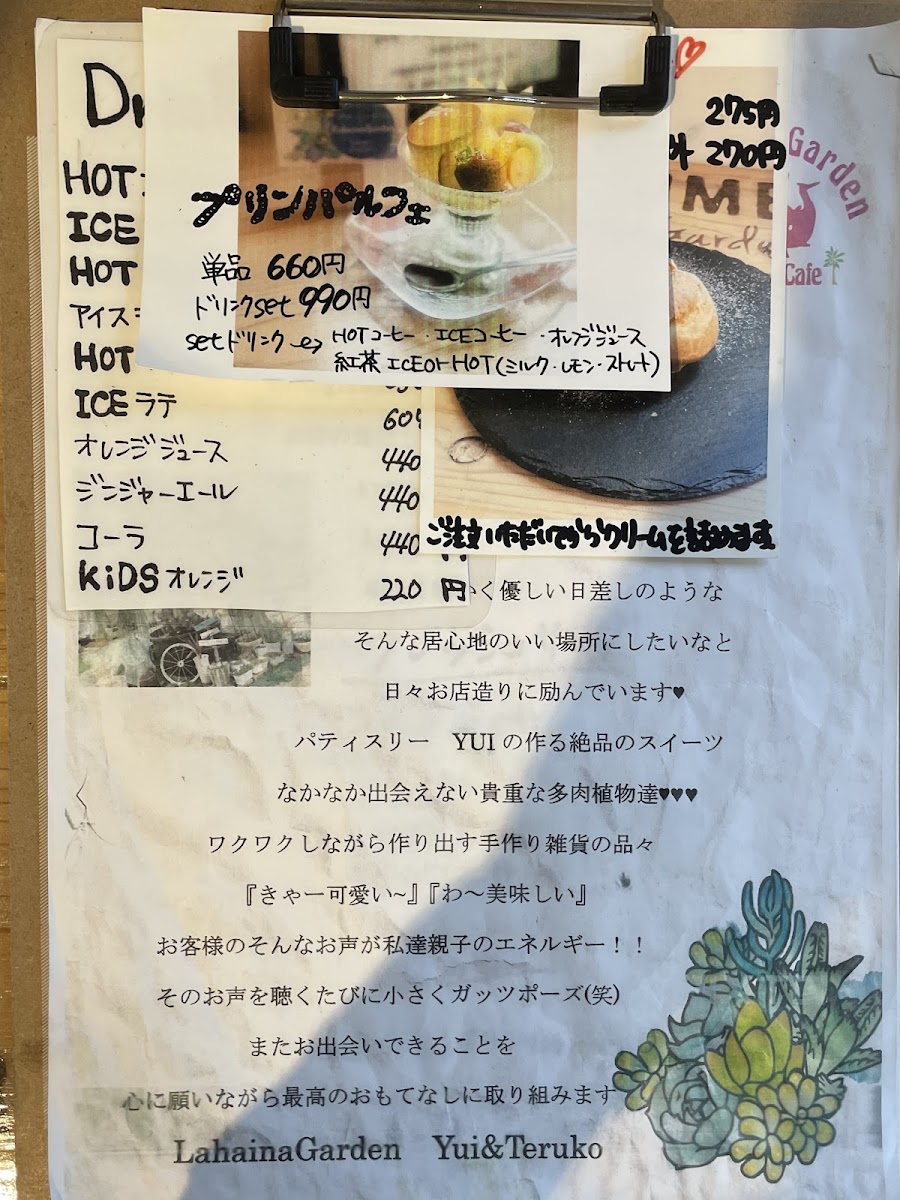 プリンパルフェ
単品 660円
ドリンクset 990円
setドリンク → HOTコーヒー・ICEコーヒー・オレンジジュース
紅茶 ICEorHOT(ミルク・レモン・ストレート)
275円
270円
Garden
Cafe
HOT
ICE
HOT
アイス
HOT
ICE ラテ
オレンジジュース 440
ジンジャーエール 440
コーラ 440
KiDS オレンジ 220 円
ご注文いただいてからクリームを詰めます
く優しい日差しのような
そんな居心地のいい場所にしたいなと
日々お店造りに励んでいます♥
パティスリー YUIの作る絶品のスイーツ
なかなか出会えない貴重な多肉植物達♥♥♥
ワクワクしながら作り出す手作り雑貨の品々
『きゃー可愛い~』『わ～美味しい』
お客様のそんなお声が私達親子のエネルギー！！
そのお声を聴くたびに小さくガッツポーズ(笑)
またお出会いできることを
心に願いながら最高のおもてなしに取り組みます
LahainaGarden Yui&Teruko